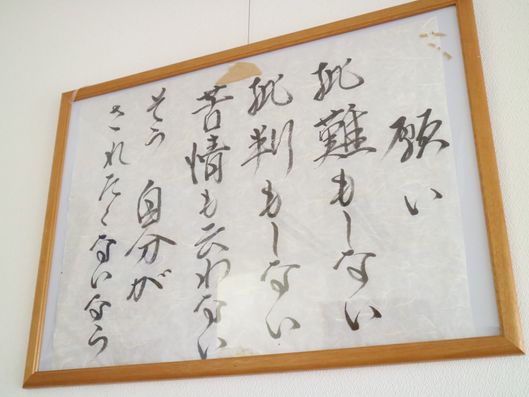 願い
批難もしない
批判もしない
苦情も云わない
そう 自分が
されたくないなら